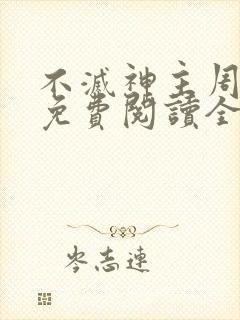 不滅神主周
免費閱讀全
岑志連